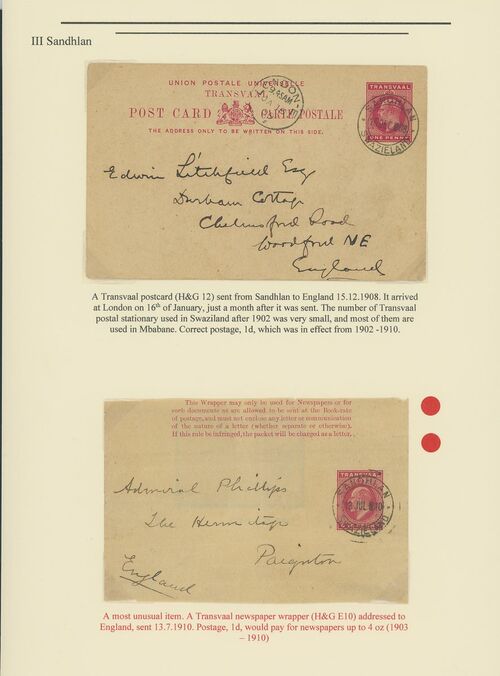 III Sandhlan
UNION POSTALE UNIVERSELLE
TRANSVAAL
POST CARD CARTE POSTALE
THE ADDRESS ONLY TO BE WRITTEN ON THIS SIDE.
LONDON
9.45AM
TRANSVAAL
ONE PENNY
SWAZIELAND
Edwin Litchfield Esq
Durham Cottage
Chelmsford Road
Woodford NE
England
A Transvaal postcard (H&G 12) sent from Sandhlan to England 15.12.1908. It arrived
at London on 16th of January, just a month after it was sent. The number of Transvaal
postal stationary used in Swaziland after 1902 was very small, and most of them are
used in Mbabane. Correct postage, 1d, which was in effect from 1902 -1910.
This Wrapper may only be used for Newspapers or for
such documents as are allowed to be sent at the Book-rate
of postage, and must not enclose any letter or communication
of the nature of a letter (whether separate or otherwise).
If this rule be infringed, the packet will be charged as a letter.
TRANSVAAL
SANDHLAN
13 JUL 1910
SWAZIELAND
Admiral Phillips
The Hermitage
Paignton
England
A most unusual item. A Transvaal newspaper wrapper (H&G E10) addressed to
England, sent 13.7.1910. Postage, 1d, would pay for newspapers up to 4 oz (1903
– 1910)